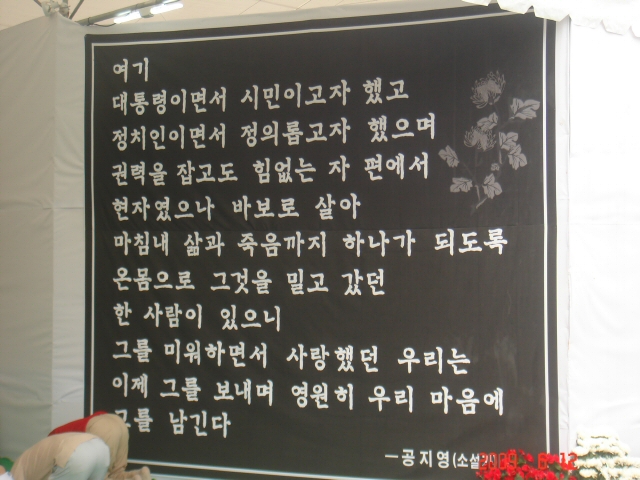 여기
대통령이면서 시민이고자 했고
정치인이면서 정의롭고자 했으며
권력을 잡고도 힘없는 자 편에서
현자였으나 바보로 살아
마침내 삶과 죽음까지 하나가 되도록
온몸으로 그것을 밀고 갔던
한 사람이 있으니
그를 미워하면서 사랑했던 우리는
이제 그를 보내며 영원히 우리 마음에
그를 남긴다
-공지영(소설가)
2009 6 12